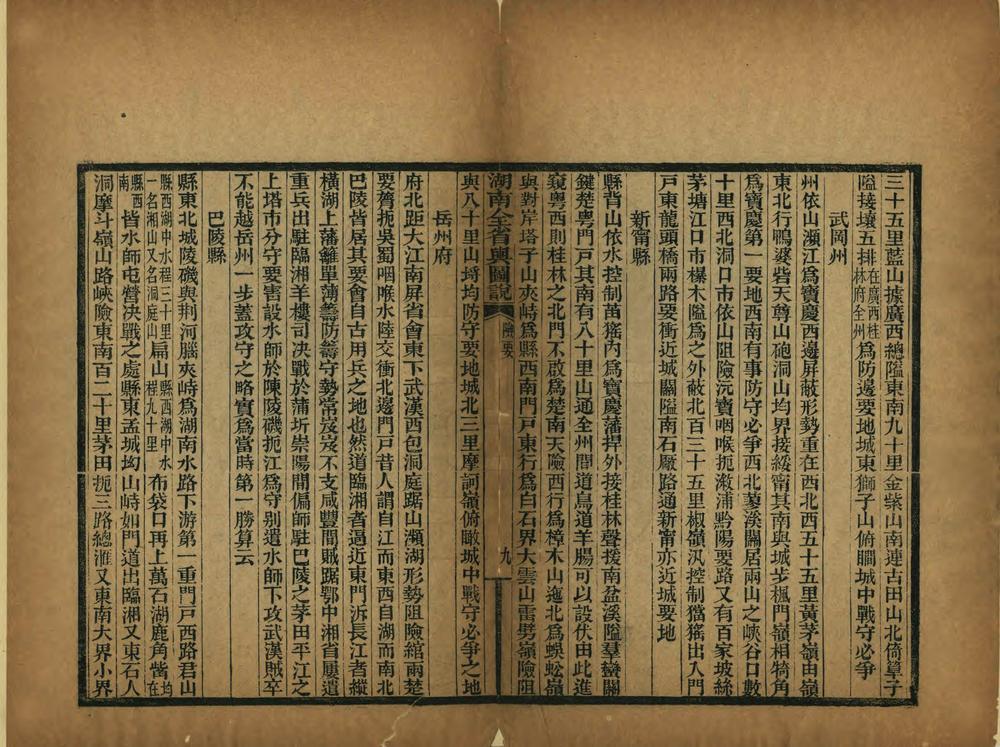 三十五里藍山據廣西總隘東南九十里金紫山南連古田山北倚草子
隘接壤五排在廣西桂林府全州爲防邊要地城東獅子山俯瞷城中戰守必爭
武岡州
州依山瀕江爲寶慶西邊屏蔽形勢重在西北西五十五里黃茅嶺由嶺
東北行鴨婆砦天尊山砲洞山均界接綏甯其南與城步楓門嶺相犄角
爲寶慶第一要地西南有事防守必爭西北蓼溪關居兩山之峽谷口數
十里西北洞口市依山阻險沅寶咽喉扼漵浦黔陽要路又有百家坡絲
茅塘江口市樶木隘爲之外蔽北百三十五里椒嶺汛控制猺猺出入門
戸東龍頭橋兩路要衝近城關隘南石厰路通新甯亦近城要地
新甯縣
縣背山依水控制苗猺内爲寶慶藩捍外接桂林聲援南盆溪隘羣蠻關
鍵楚粤門戸其南有八十里山通全州間道鳥道羊腸可以設伏由此進
窺粤西則桂林之北門不啟爲楚南天險西行爲樟木山迤北爲蜈蚣嶺
與對岸塔子山夾峙爲縣西南門戸東行爲白石界大雲山雷劈嶺險阻
湖南全省輿圖說
險要
九
與八十里山埼均防守要地城北三里摩訶嶺俯瞰城中戰守必爭之地
岳州府
府北距大江南屏省會東下武漢西包洞庭踞山瀕湖形勢阻險綰兩楚
要膂扼吳蜀咽喉水陸交衝北邊門戸昔人謂自江而東西自湖而南北
巴陵皆居其要會自古用兵之地也然道臨湘者逼近東門泝長江者縱
橫湖上藩籬單薄籌防籌守勢常岌岌不支咸豐間賊踞鄂中湘首屢遣
重兵出駐臨湘羊樓司决戰於蒲圻崇陽間偏師駐巴陵之茅田平江之
上塔市分守要害設水師於陳陵磯扼江爲守别遣水師下攻武漢賊卒
不能越岳州一步蓋攻守之略實爲當時第一勝算云
巴陵縣
縣東北城陵磯與荆河腦夾峙爲湖南水路下游第一重門戸西路君山
縣西湖中水程三十里一名湘山又名洞庭山扁山縣西湖中水程九十里布袋口再上萬石湖鹿角砦均在
縣西南皆水師屯營决戰之處縣東孟城㘬山峙如門道出臨湘又東石人
洞摩斗嶺山路峽險東南百二十里茅田扼三路總滙又東南大界小界